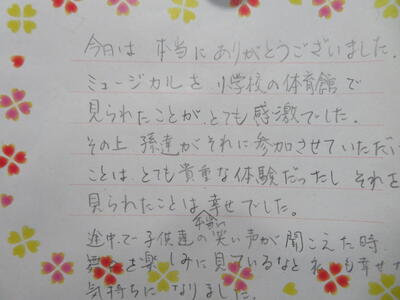 今日は 本当に ありがとうございました。
ミュージカルを 小学校の体育館で
見られたことが、とても感激でした。
その上 孫達が それに参加させていただい
ことは、とても貴重な体験だったし それを
見られたことは 本当に 幸せでした。
途中で 子供達の笑い声が聞こえた時
を楽しみに見ているなと 私も幸せな
気持ちに なりました。